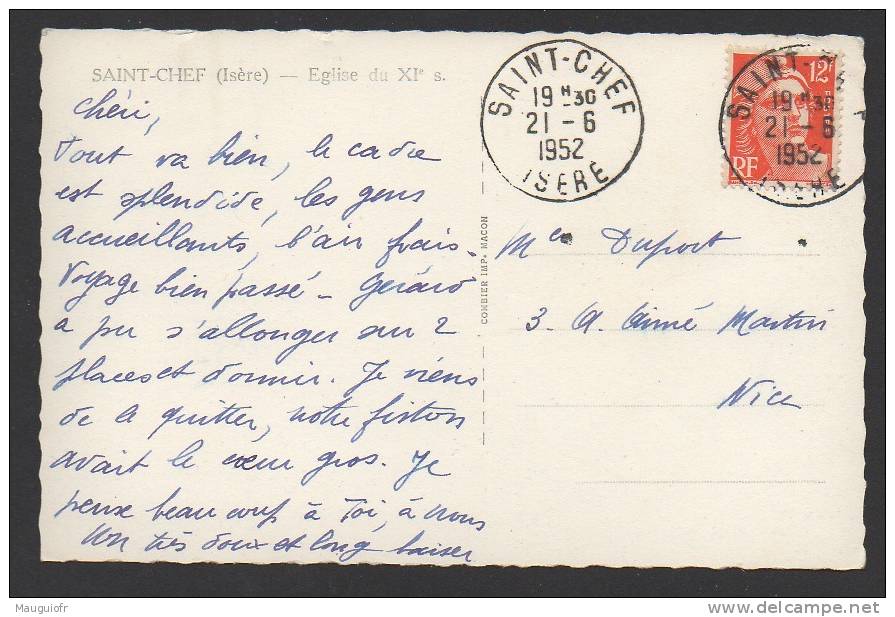 SAINT-CHEF (Isère) — Eglise du XIe s.
Chéri,
Tout va bien, le cadre
est splendide, les gens
accueillants, l'air frais.
Voyage bien passé – Gérard
a pu s'allonger sur 2
places et dormir. Je viens
de le quitter, notre fiston
avait le cœur gros. Je
pense beaucoup à Toi, à nous
Un très doux et long baiser
COMBIER IMP. MACON
SAINT-CHEF
19 H 30
21 - 6
1952
ISERE
12F
RF
SAINT-
19 H 30
21 - 6
1952
Duport
3. A. Aimé Martin
Nice
Mauguiofr
delcampe.net